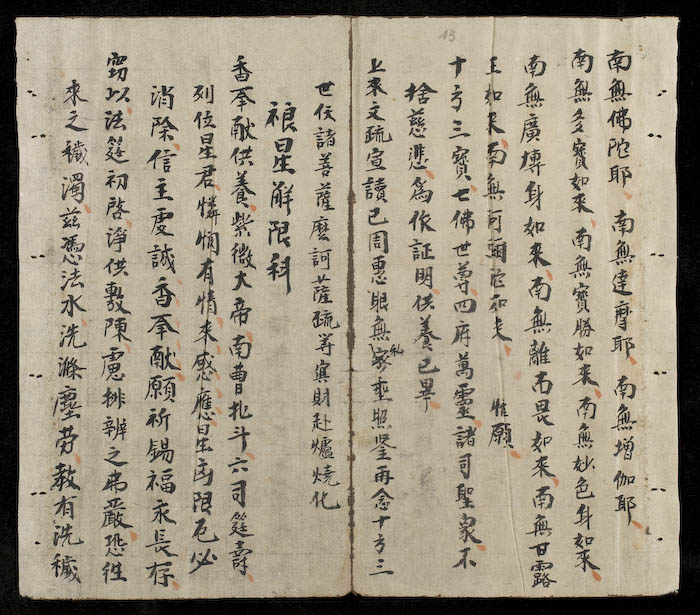 南無佛陀耶 南無達摩耶 南無增伽耶
南無多寶如來 南無寶勝如來 南無妙色身如來
南無廣博身如來 南無離怖畏如來 南無甘露
王如來 南無阿彌陀如來 惟願
十方三寶七佛世尊四府萬靈諸司聖衆不
捨慈悲為作証明供養已畢
上來文疏宣讀已周惠眼無私垂照鉴再念十方三
世仸諸菩薩摩訶薩疏等冥財赴爐燒化
禳星解限科
香奉献供養紫微大帝南曹北斗六司筵壽
列位星君憐憫有情來感應星凶限厄必
消除信主虔誠香奉献願祈錫福永長存
窃以法筵初啓淨供敷陳慮排辦之弗嚴恐往
來之穢濁兹憑法水洗滌塵劳教有洗穢